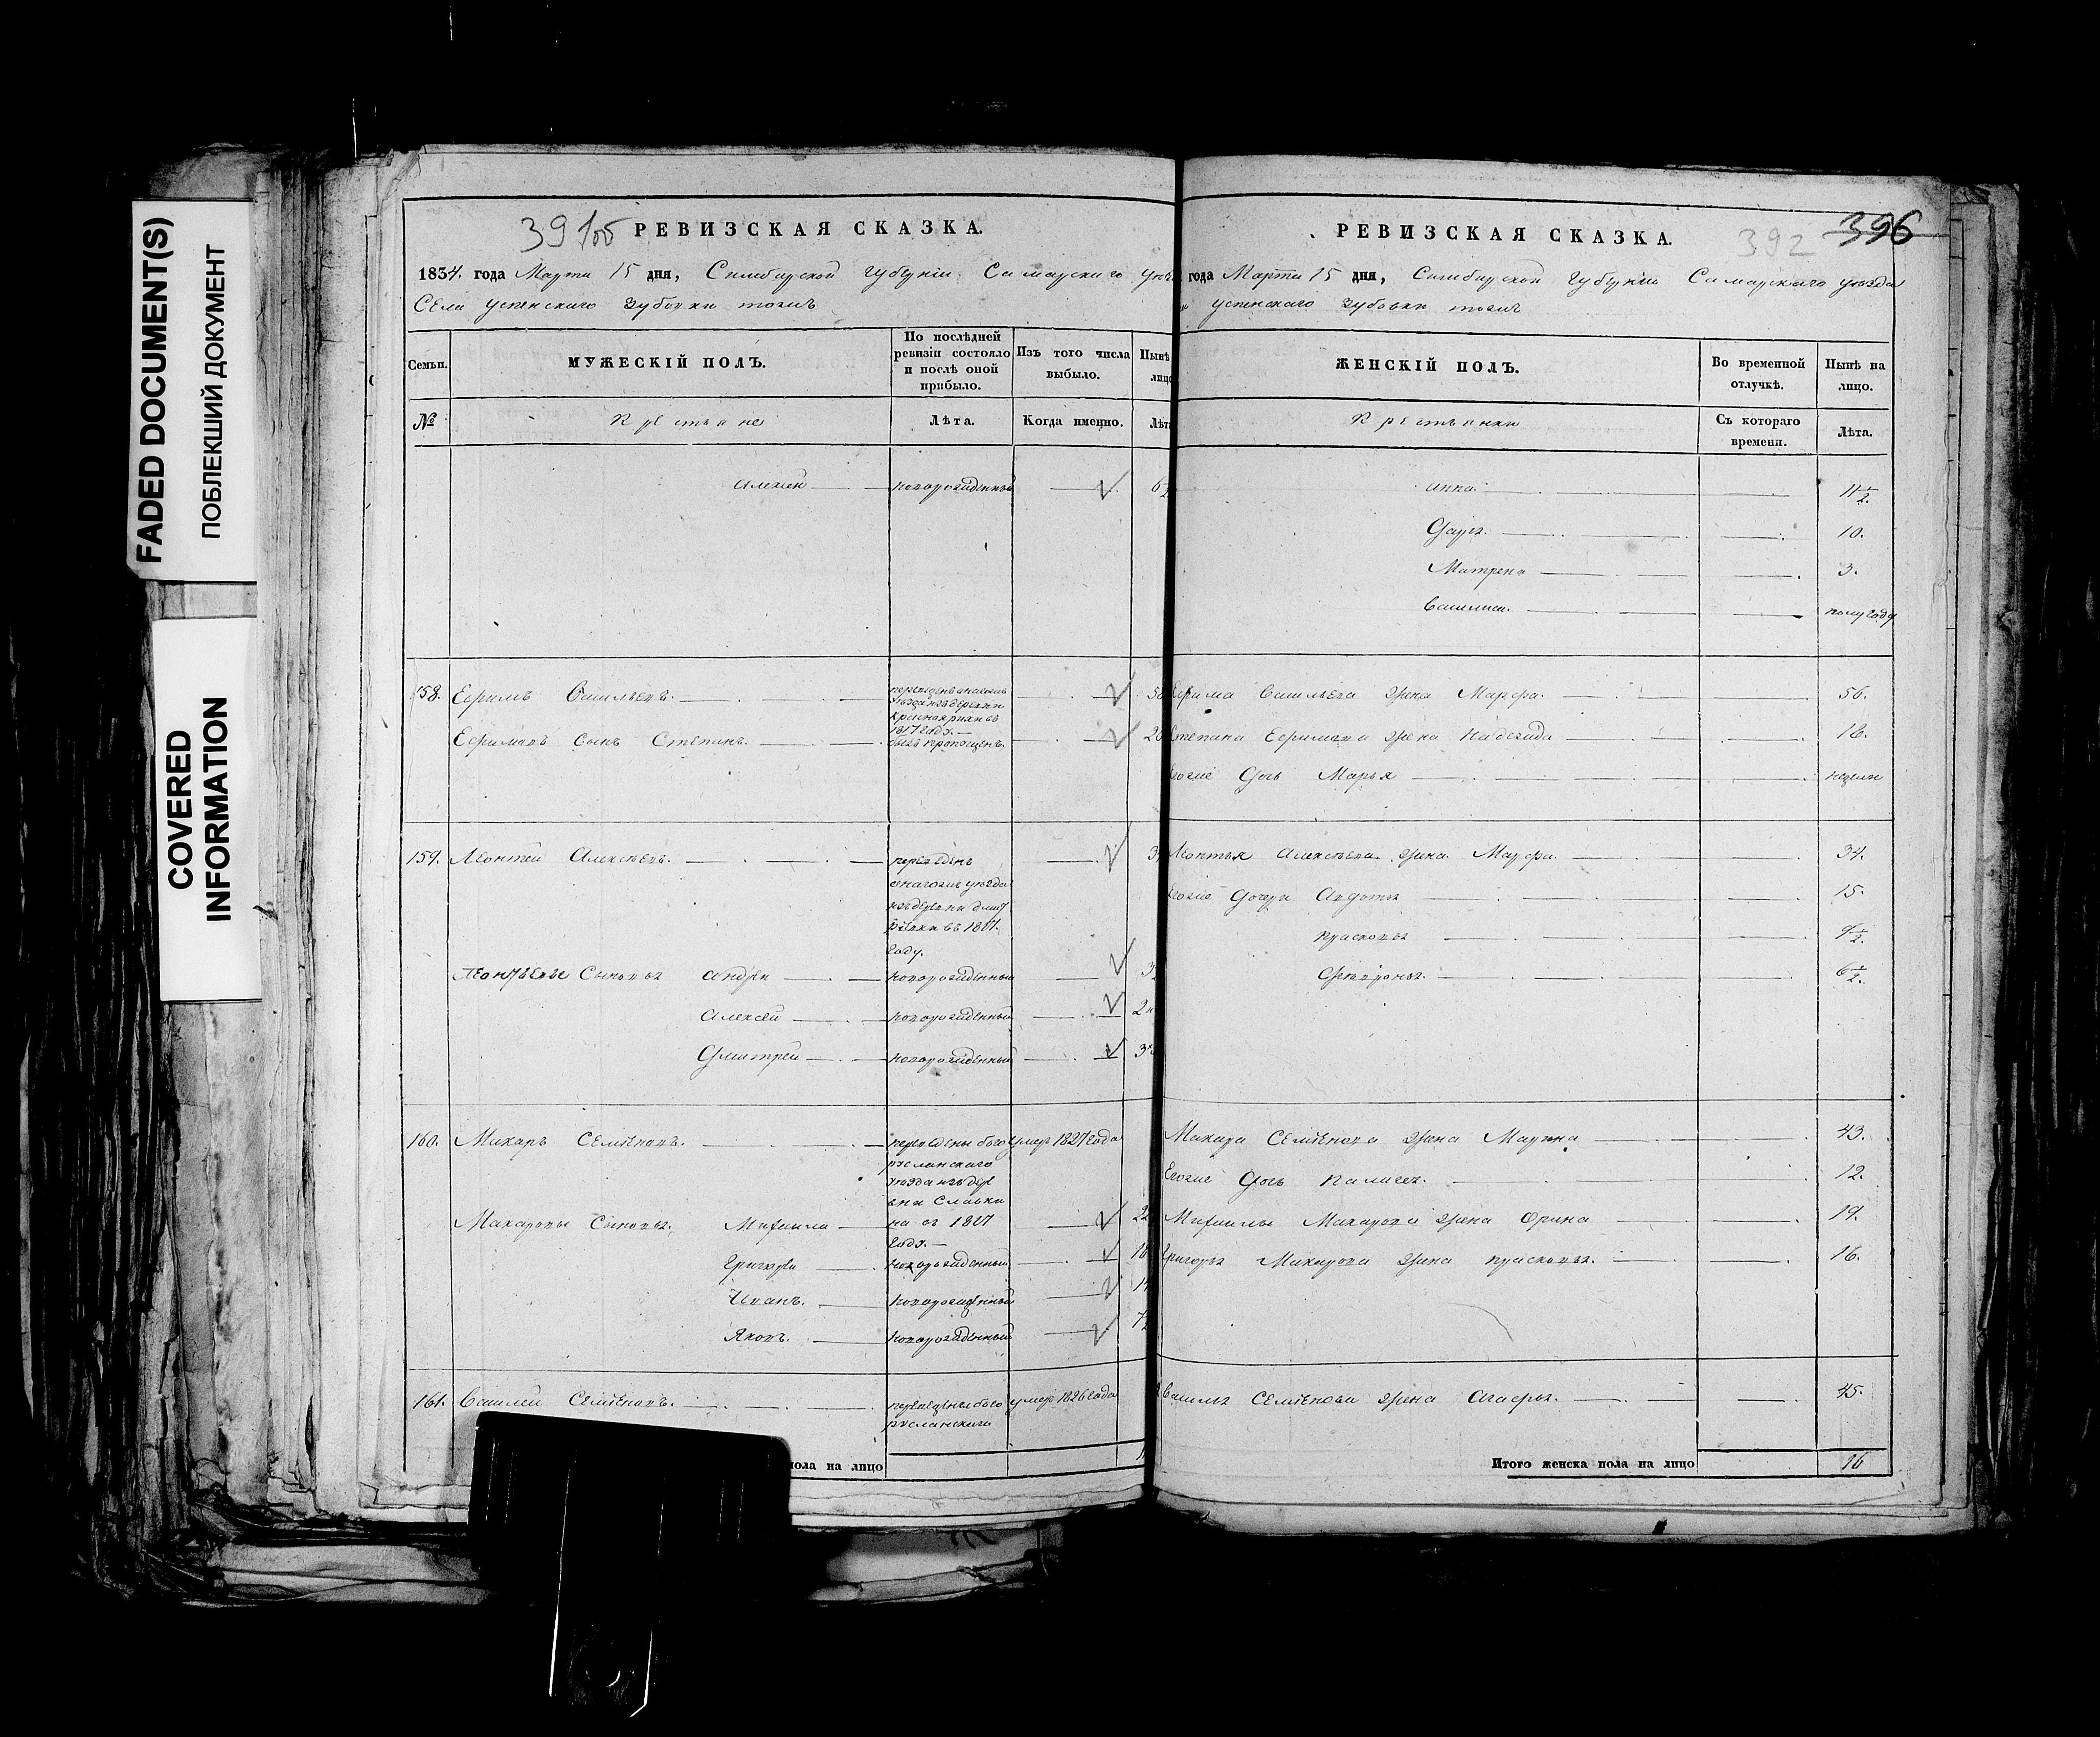 FADED DOCUMENT(S)
ПОБЛЕКШИЙ ДОКУМЕНТ
COVERED INFORMATION
391об РЕВИЗСКАЯ СКАЗКА.
1834. года Марта 15 дня, Симбирской Губерніи Самарскаго
Села Успенскаго Зубовки тожъ
Семьи. МУЖЕСКІЙ ПОЛЪ. По послѣдней ревизіи состояло и послѣ оной прибыло. Изъ того числа выбыло. Нынѣ лицо
№ Крестьяне Лѣта. Когда именно. Лѣта
Алексей новорожденный 6½
158. Ефримъ Васильевъ.
1817 году.
Ефримовъ сынъ Степанъ. былъ пропощенъ.
159. Леонтей Алексѣевъ. переведенъ
году.
Леонтьевы Сыновья Андреи новорожденный
Алексей новорожденный
Дмитрей новорожденный
160. Макаръ Семеновъ. переведены бого умеръ 1827 года
русланскаго
уѣзда изъ дер
вни Славки
на въ 1817
году.
Макаровы Сыновья. Михаила
Григореи новорожденный
Иванъ. новорожденный
Яковъ. новорожденный
161. Василей Семеновъ. переведены бого умеръ 1826 года
русланскаго
пола на лицо
РЕВИЗСКАЯ СКАЗКА. 392 396
года Марта 15 дня, Симбирской Губерніи Самарскаго уѣзда
Успенскаго Зубовки тожъ
ЖЕНСКІЙ ПОЛЪ. Во временной отлучкѣ. Нынѣ на лицо.
Крестьянки Съ котораго времени. Лѣта.
Анна 11½.
Дарья. 10.
Матрена 3.
Василиса. полугоду
Ефрима Васильева жена Марфа. 56.
Степана Ефримова жена Надежда 18.
Егоже Дочь Марья недели
Леонтья Алексѣева жена Марфа 34.
Егоже Дочери Авдотья 15.
Прасковья 9½.
Февронья. 6½.
Макара Семенова жена Марина 43.
Егоже Дочь Палагея. 12.
Михаилы Макарова жена Орина 19.
Григорья Макарова жена Прасковья. 16.
Василья Семенова жена Агафья. 45.
Итого женска пола на лицо 16